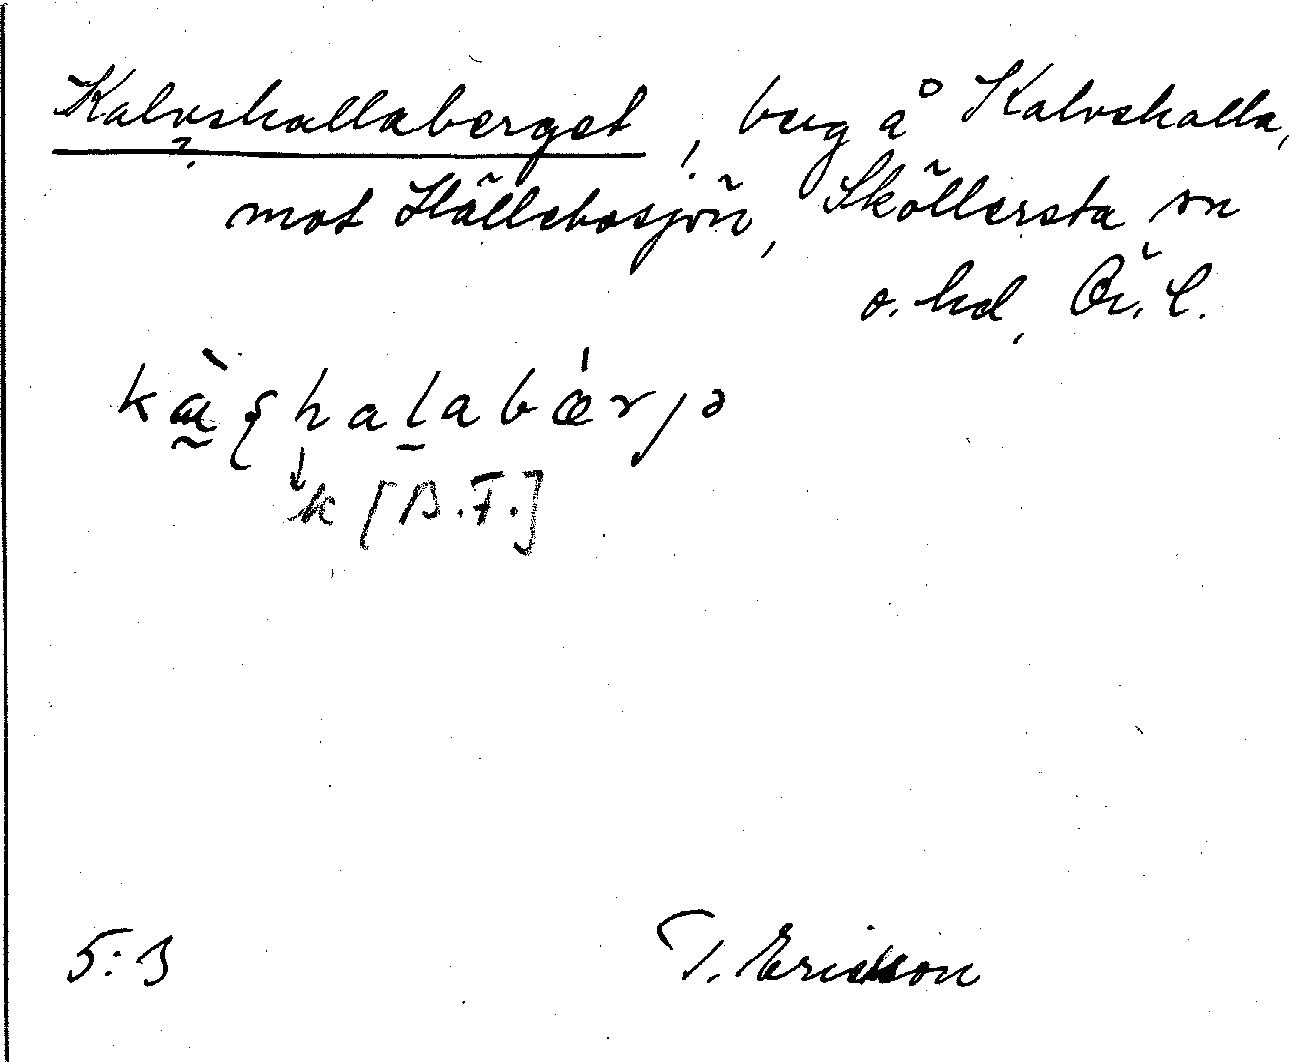 Kalvshallaberget, berg å Kalvshalla,
?
!
mot Hällebosjön, Sköllersta sn
o. hd, Ör. l.
kɑ̀ʂhalabǽrjə
k [B.F.]
5:3 T. Ericsson